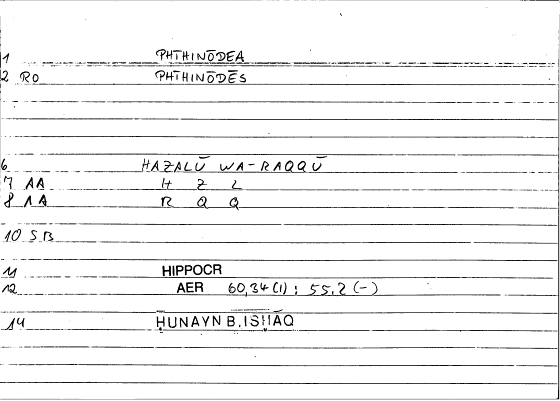 1 PHTHINŌDEA
2 RO PHTHINŌDĒS
6 HAZALŪ WA-RAQQŪ
7 AA H Z L
8 AA R Q Q
10 SB
11 HIPPOCR
12 AER 60,34 (1) : 55,2 (-)
14 ḤUNAYN B. ISḤĀQ